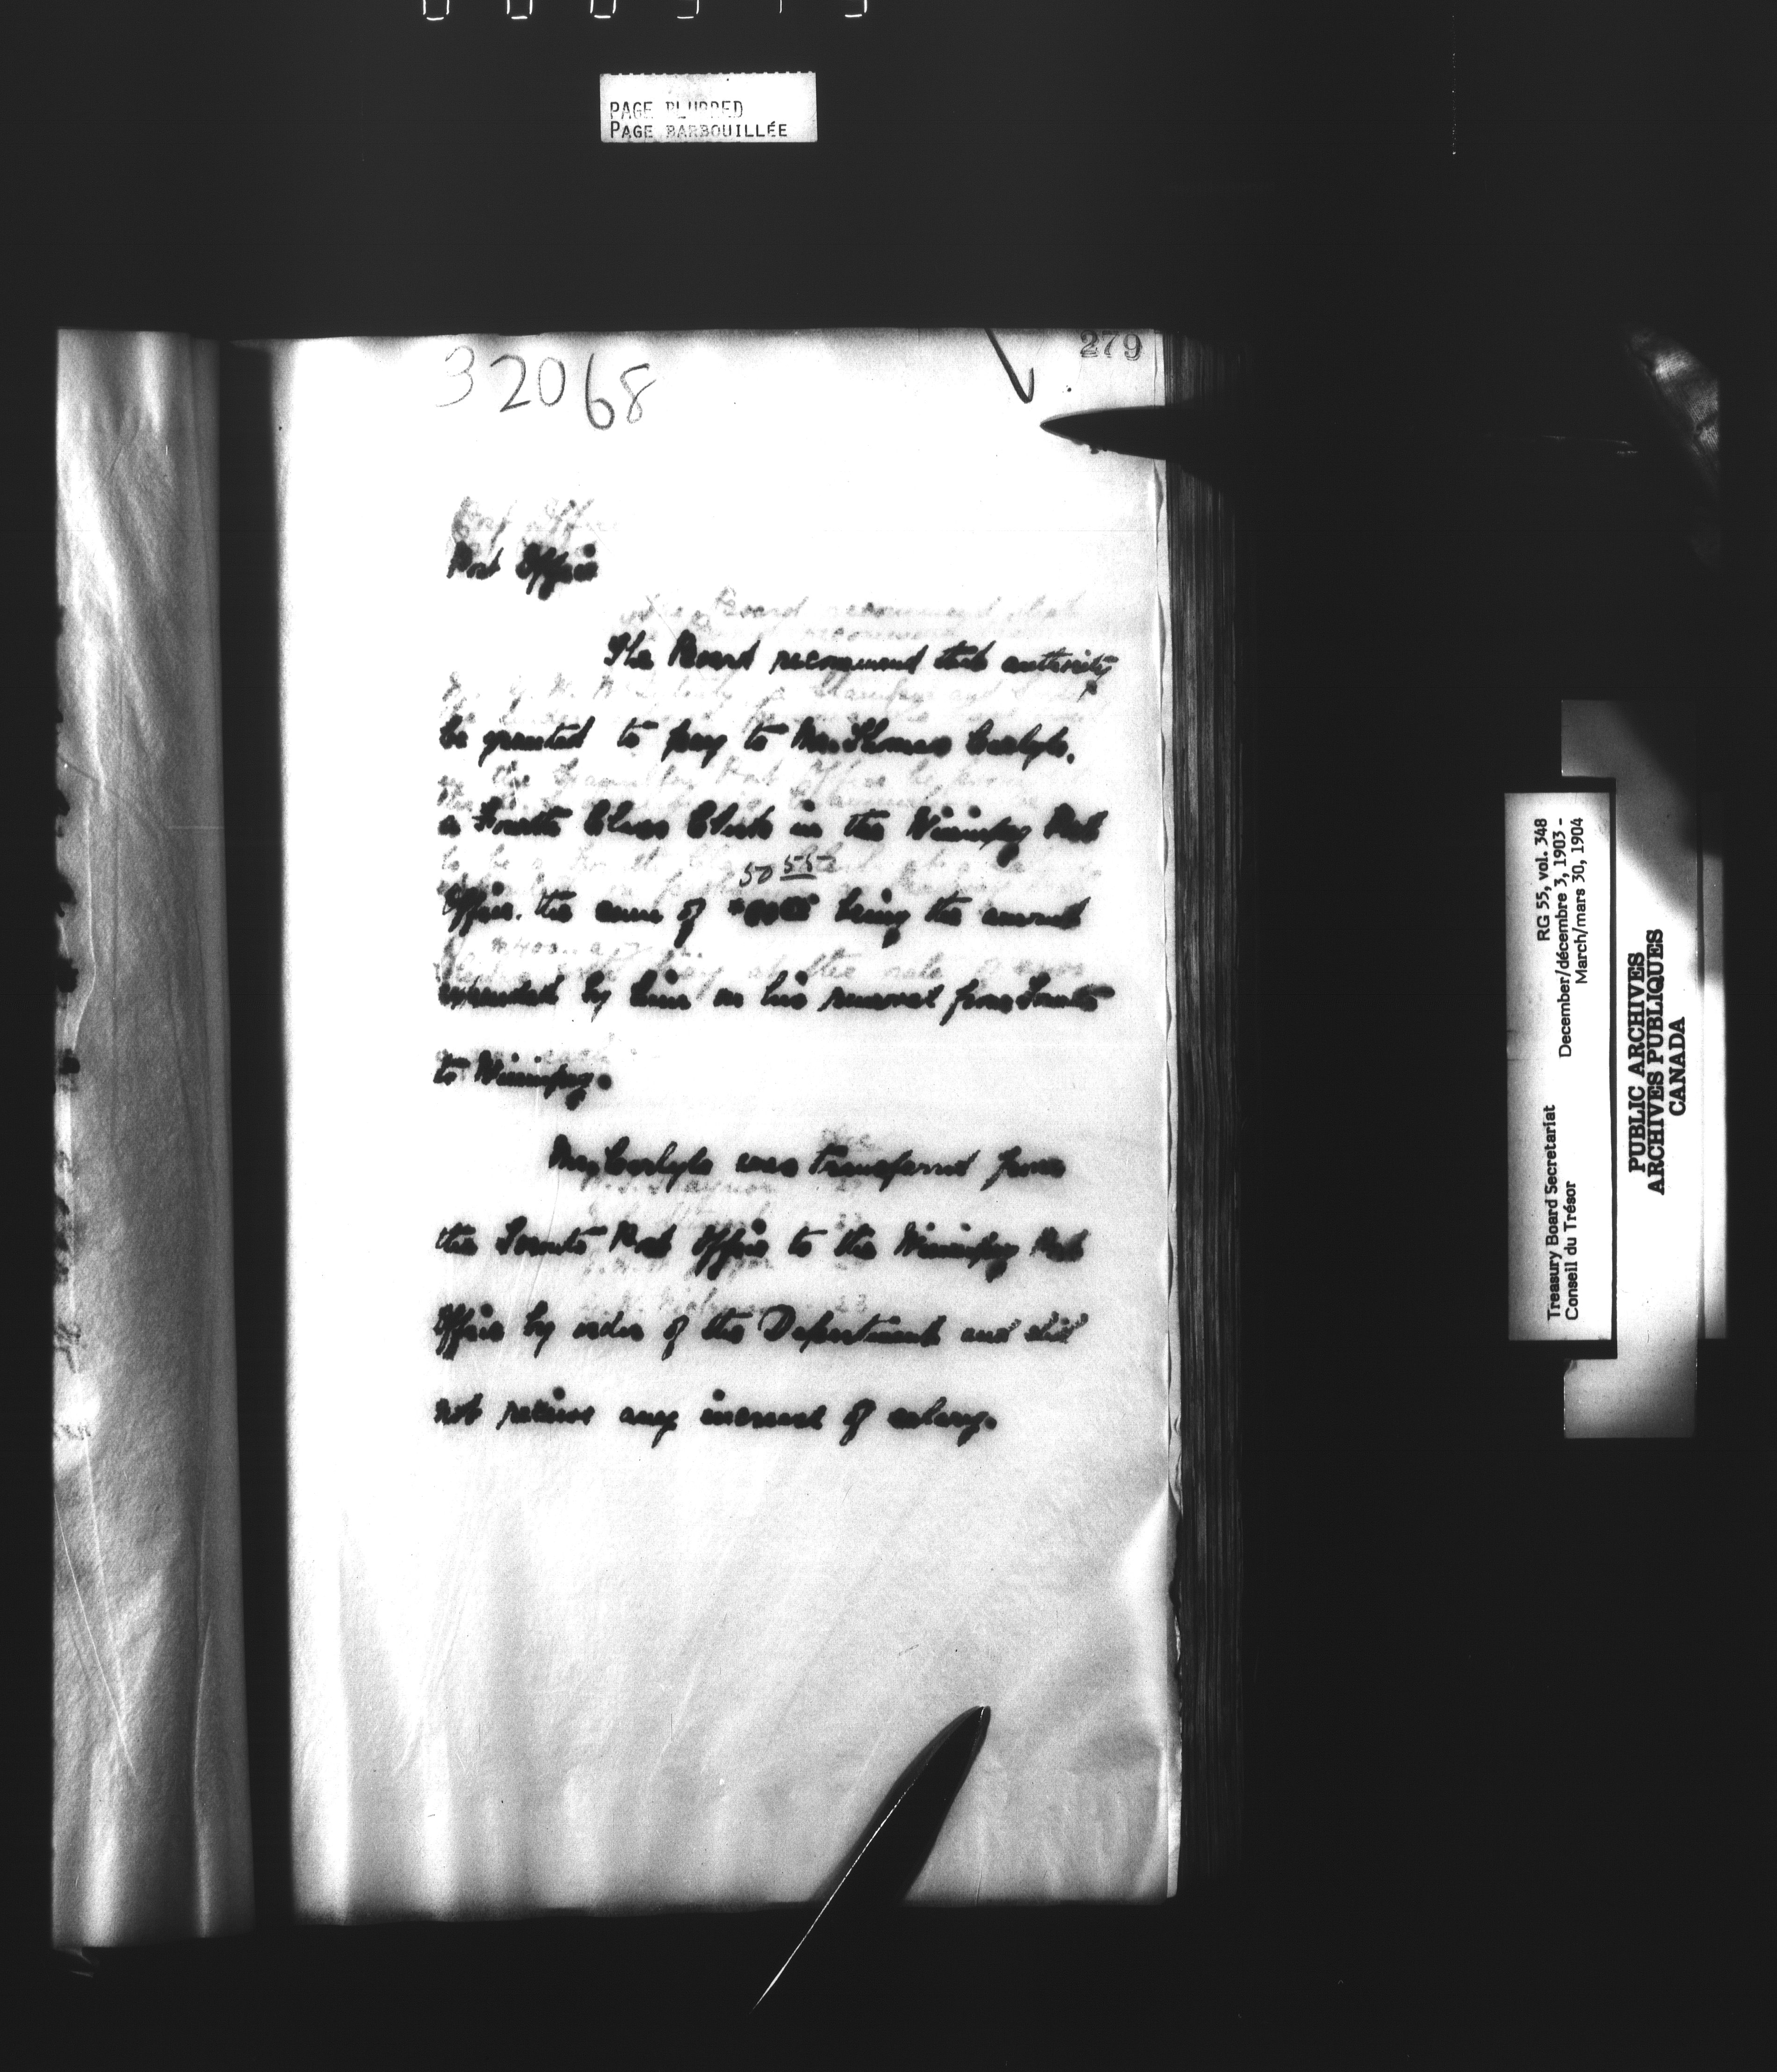 PAGE BLURRED
PAGE BARBOUILLÉE
279
32068
Post Office
The Board recommend that authority
be granted to pay to Mr. Thomas Carlyle,
a Fourth Class Clerk in the Winnipeg Post
50 55
Office, the sum of being the amount
expended by him on his removal from Toronto
to Winnipeg.
Mr. Carlyle was transferred from
the Toronto Post Office to the Winnipeg Post
Office by order of the Department and did
not receive any increase of salary.
Treasury Board Secretariat RG 55, vol. 348
Conseil du Trésor December/décembre 3, 1903 -
March/mars 30, 1904
PUBLIC ARCHIVES
ARCHIVES PUBLIQUES
CANADA